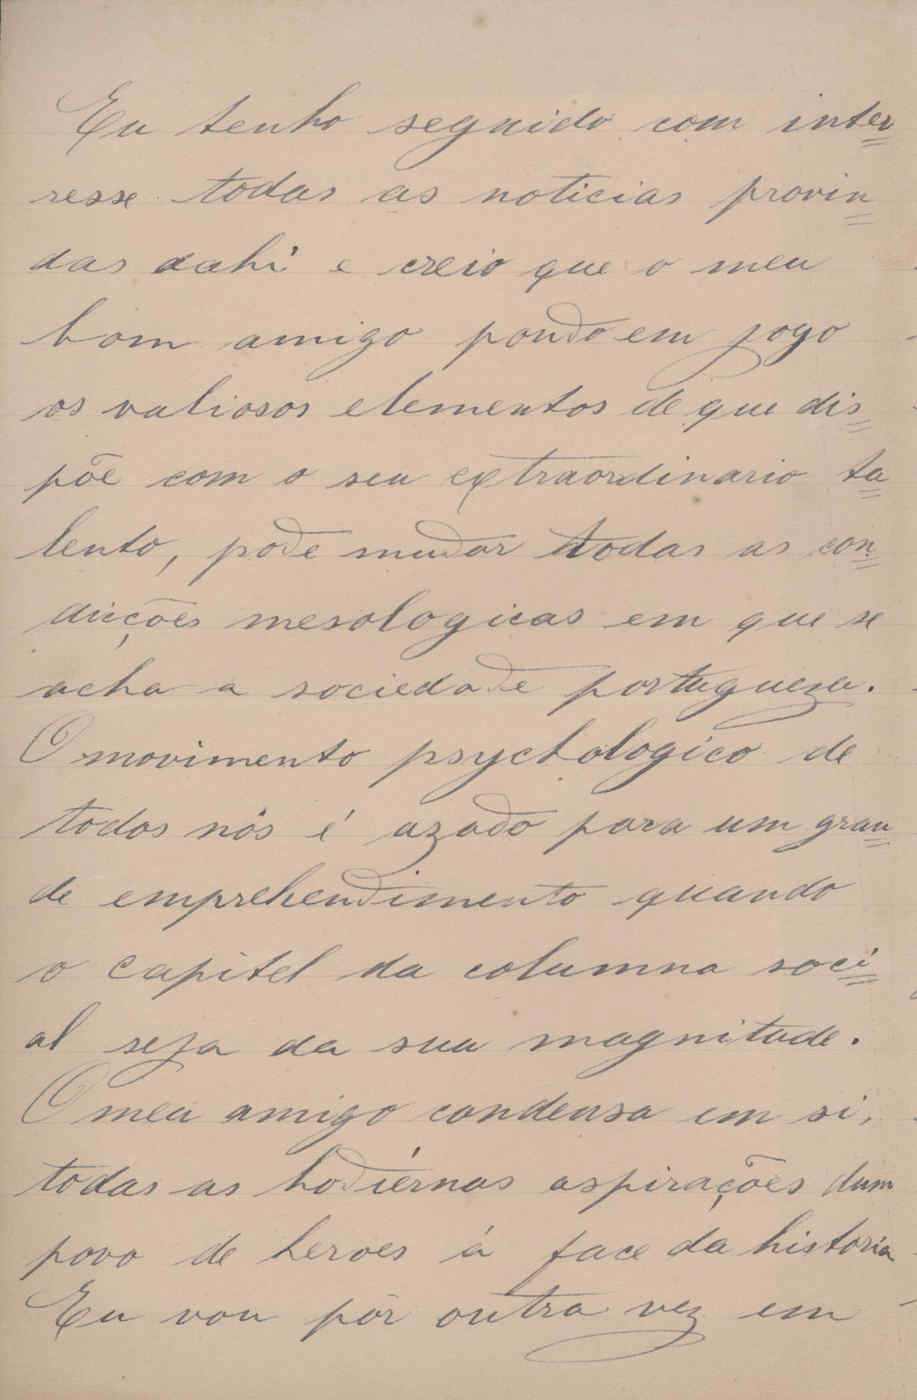 Eu tenho seguido com inter=
resse todas as noticias provin=
das dahi e creio que o meu
bom amigo pondo em jogo
os valiosos elementos de que dis=
põe com o seu extraordinario ta=
lento, pode mudar todas as con=
dicções mesologicas em que se
acha a sociedade portugueza.
O movimento psychologico de
todos nós é azado para um gran=
de emprehendimento quando
o capitel da columna soci=
al seja da sua magnitude.
O meu amigo condensa em si,
todas as hodiérnas aspirações dum
povo de heroes á face da historia
Eu vou pôr outra vez em